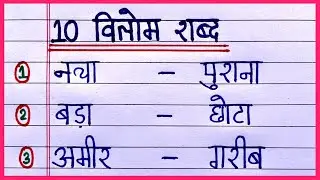 10 विलोम शब्द
1 नया – पुराना
2 बड़ा – छोटा
3 अमीर – गरीब